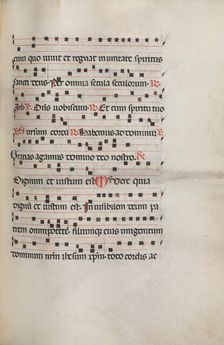 cum quo vivit et regnat in unitate spiritus
sancti deus. Per omnia secula seculorum. ℟
Dñs vobiscum ℟ Et cum spiritu tuo
Sursum corda ℟ habemus ad dominum
Gratias agamus domino deo nostro. ℟
Dignum et iustum est. Vere quia
dignum et iustum est. Invisibilem deum pa
trem omnipotentem filiumque eius unigenitum
dominum nrm ihesum xpm toto cordis ac